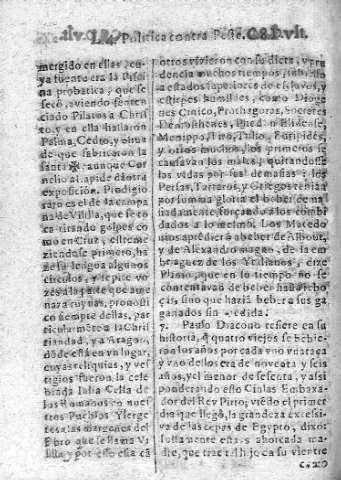 Politica contra Peste.
mergido en ellas
ya fuente era la Pisci
na probatica, que se
secò, aviendo senten
ciado Pilatos a Chris
to, y en ella hallaron
Palma, Cedro, y oliva
de que fabricaron la
santa aunque Cor
nelio
exposicion. Prodigio
raro es el de la campa
na de Vililla, que se to
ca dando golpes co
mo en Cruz, estreme
ziendose primero, ha
ze su lengua algunos
circulos, y repite vo
zes a la parte que ame
naza ruynas, pronosti
co siempre dellas, par
ticularmente a la Chris
tiandad, y a Aragon,
dõde està en un lugar,
cuyas reliquias, y ves
tigios fueron la cele
brada Iulia Celsa de
los Romanos en nues
tros Pueblos Ylerge
tes, a las margenes del
Ebro que se llama Vi
lilla, y por esso esta cã
otros vivieron con su dieta, y pru
dencia muchos tiempos,
a estados superiores de
estirpes humildes, como Dioge
nes Cinico, Prothagoras, Socrates
Demosthenes,
Menippo, Tulio, Euripides,
y otros muchos, los primeros se
causavan los males, quitandosse
las vidas por sus demasias: los
Persas, Tartaros, y Griegos tenian
por summa gloria el bober
siadamente, forçando a los combi
dados a lo mesmo. Los Macedo
nios aprēdierō a beber de
y de Alexandro magno, de la em
briaguez de los Ytalianos, dize
Plinio, que en su tiempo no se
contentavan de beber
ços, sino que hazia beber a sus ga
ganados sin medida.
7. Paulo Diacono refiere en su
historia, q̃ quatro viejos se bebie
ron los años por cada uno
y uno dellos era de noventa y seis
años, y el menor de sesenta, y assi
ponderando esto Cinias Embaxa
dor del Rey Pirro; viẽdo el primer
dia que llegò, la grandeza excessi
va de las cepas de Egypto, dixo:
justamente està ahorcada ma
dre, que trae tal hijo en su vientre